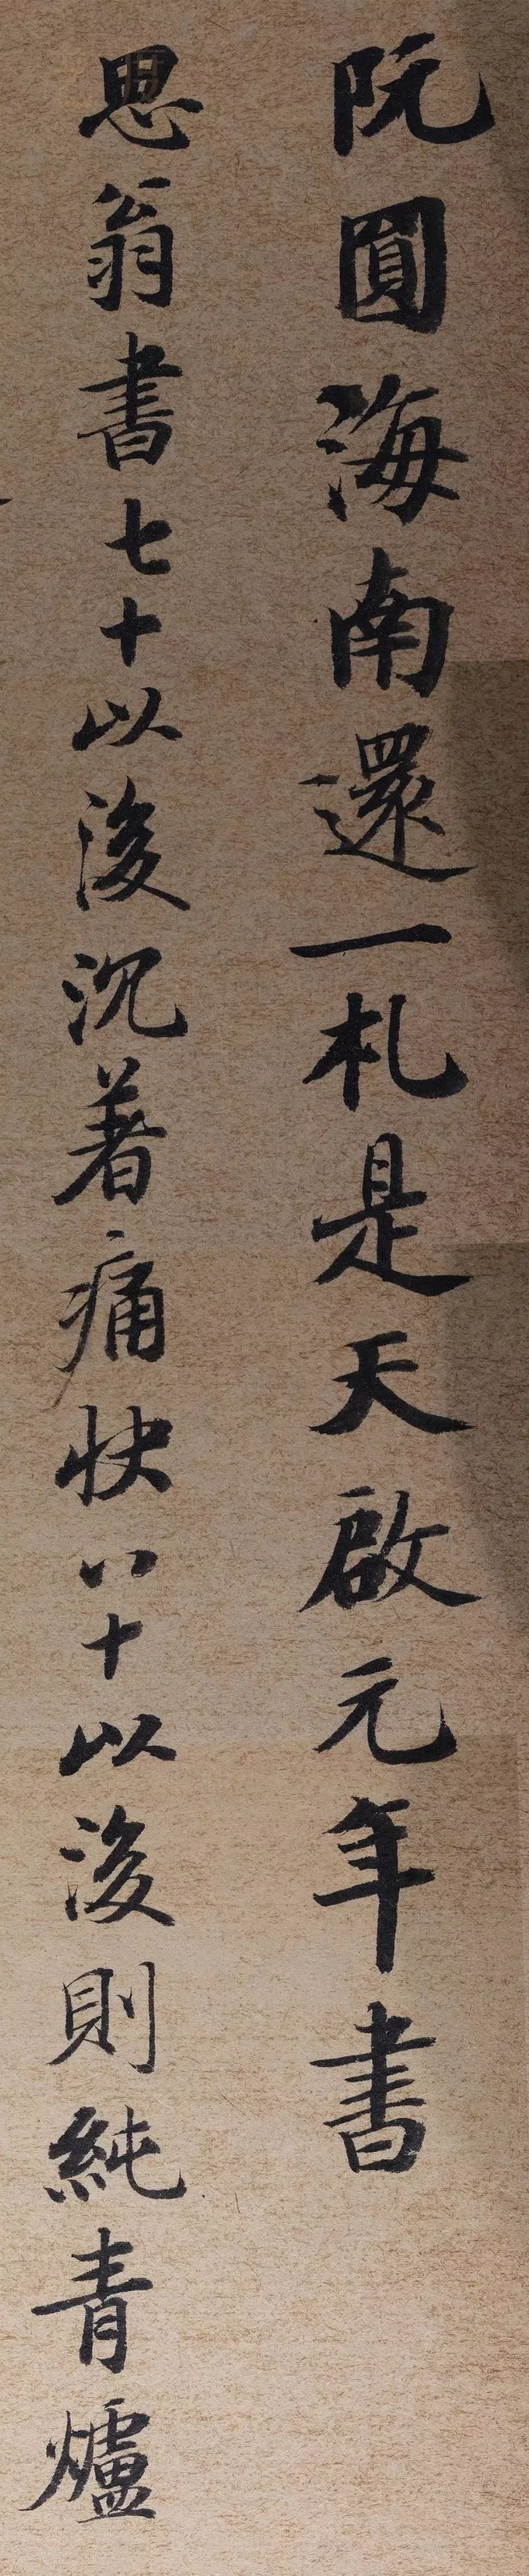 阮圓海南還一札是天啟元年書
思翁書七十以後沉著痛快八十以後則純青爐